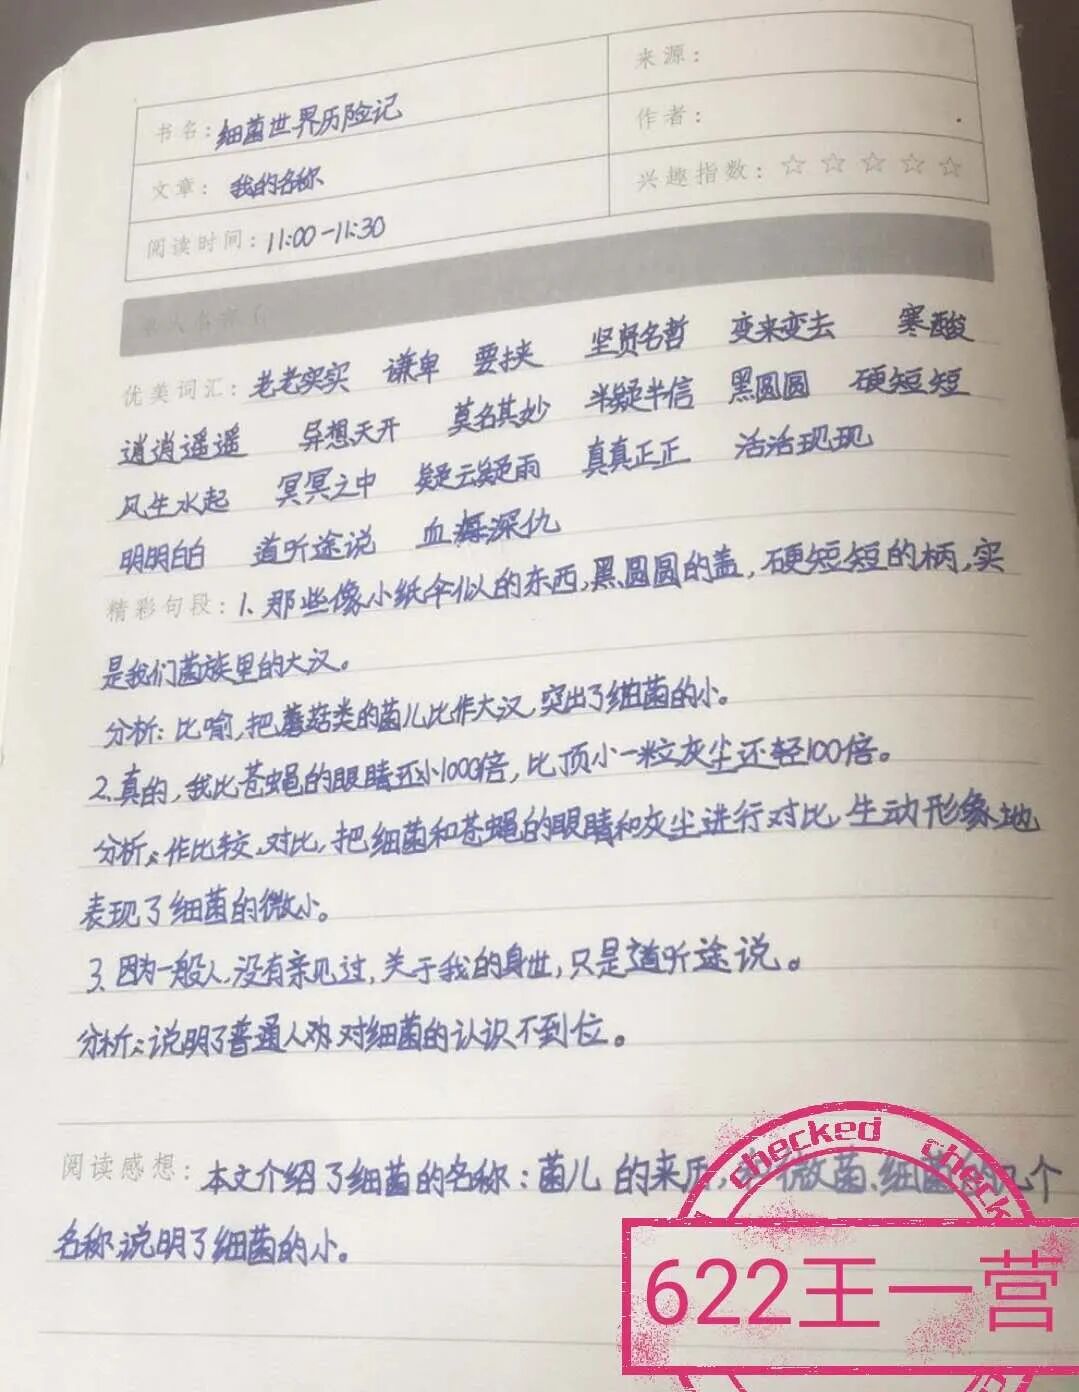 来源：
书名：细菌世界历险记
作者：
文章：我的名称
兴趣指数：☆☆☆☆☆
阅读时间：11:00-11:30
优美词汇：老老实实 谦卑 要挟 坚贤名哲 变来变去 寒酸
逍逍遥遥 异想天开 莫名其妙 半疑半信 黑圆圆 硬短短
风生水起 冥冥之中 疑云疑雨 真真正正 活活现现
明明白白 道听途说 血海深仇
精彩句段：1、那些像小纸伞似的东西,黑圆圆的盖,硬短短的柄,实
是我们菌族里的大汉。
分析：比喻,把蘑菇类的菌儿比作大汉,突出了细菌的小。
2、真的,我比苍蝇的眼睛还小1000倍,比顶小一粒灰尘还轻100倍。
分析：作比较、对比,把细菌和苍蝇的眼睛和灰尘进行对比,生动形象地
表现了细菌的微小。
3、因为一般人,没有亲见过,关于我的身世,只是道听途说。
分析：说明了普通人对细菌的认识不到位。
阅读感想：本文介绍了细菌的名称：菌儿的来历,微菌、细菌的几个
名称说明了细菌的小。
checked
622王一营